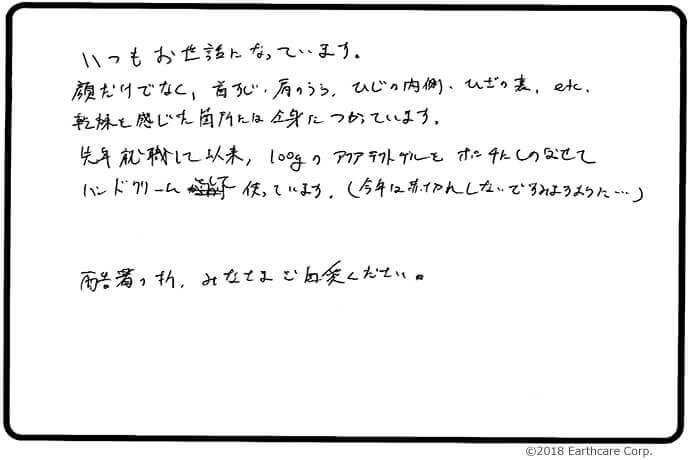 いつもお世話になっています。
顔だけでなく、首すじ・肩のうら、ひじの内側、ひざの裏、etc.
乾燥を感じた箇所には全身につかっています。
先年就職して以来、100gのアクアテクトゲルをポンチにしのばせて
ハンドクリームとして使っています。(今年は赤切れしないですみますように…)
酷暑の折、みなさまご自愛ください。
©2018 Earthcare Corp.